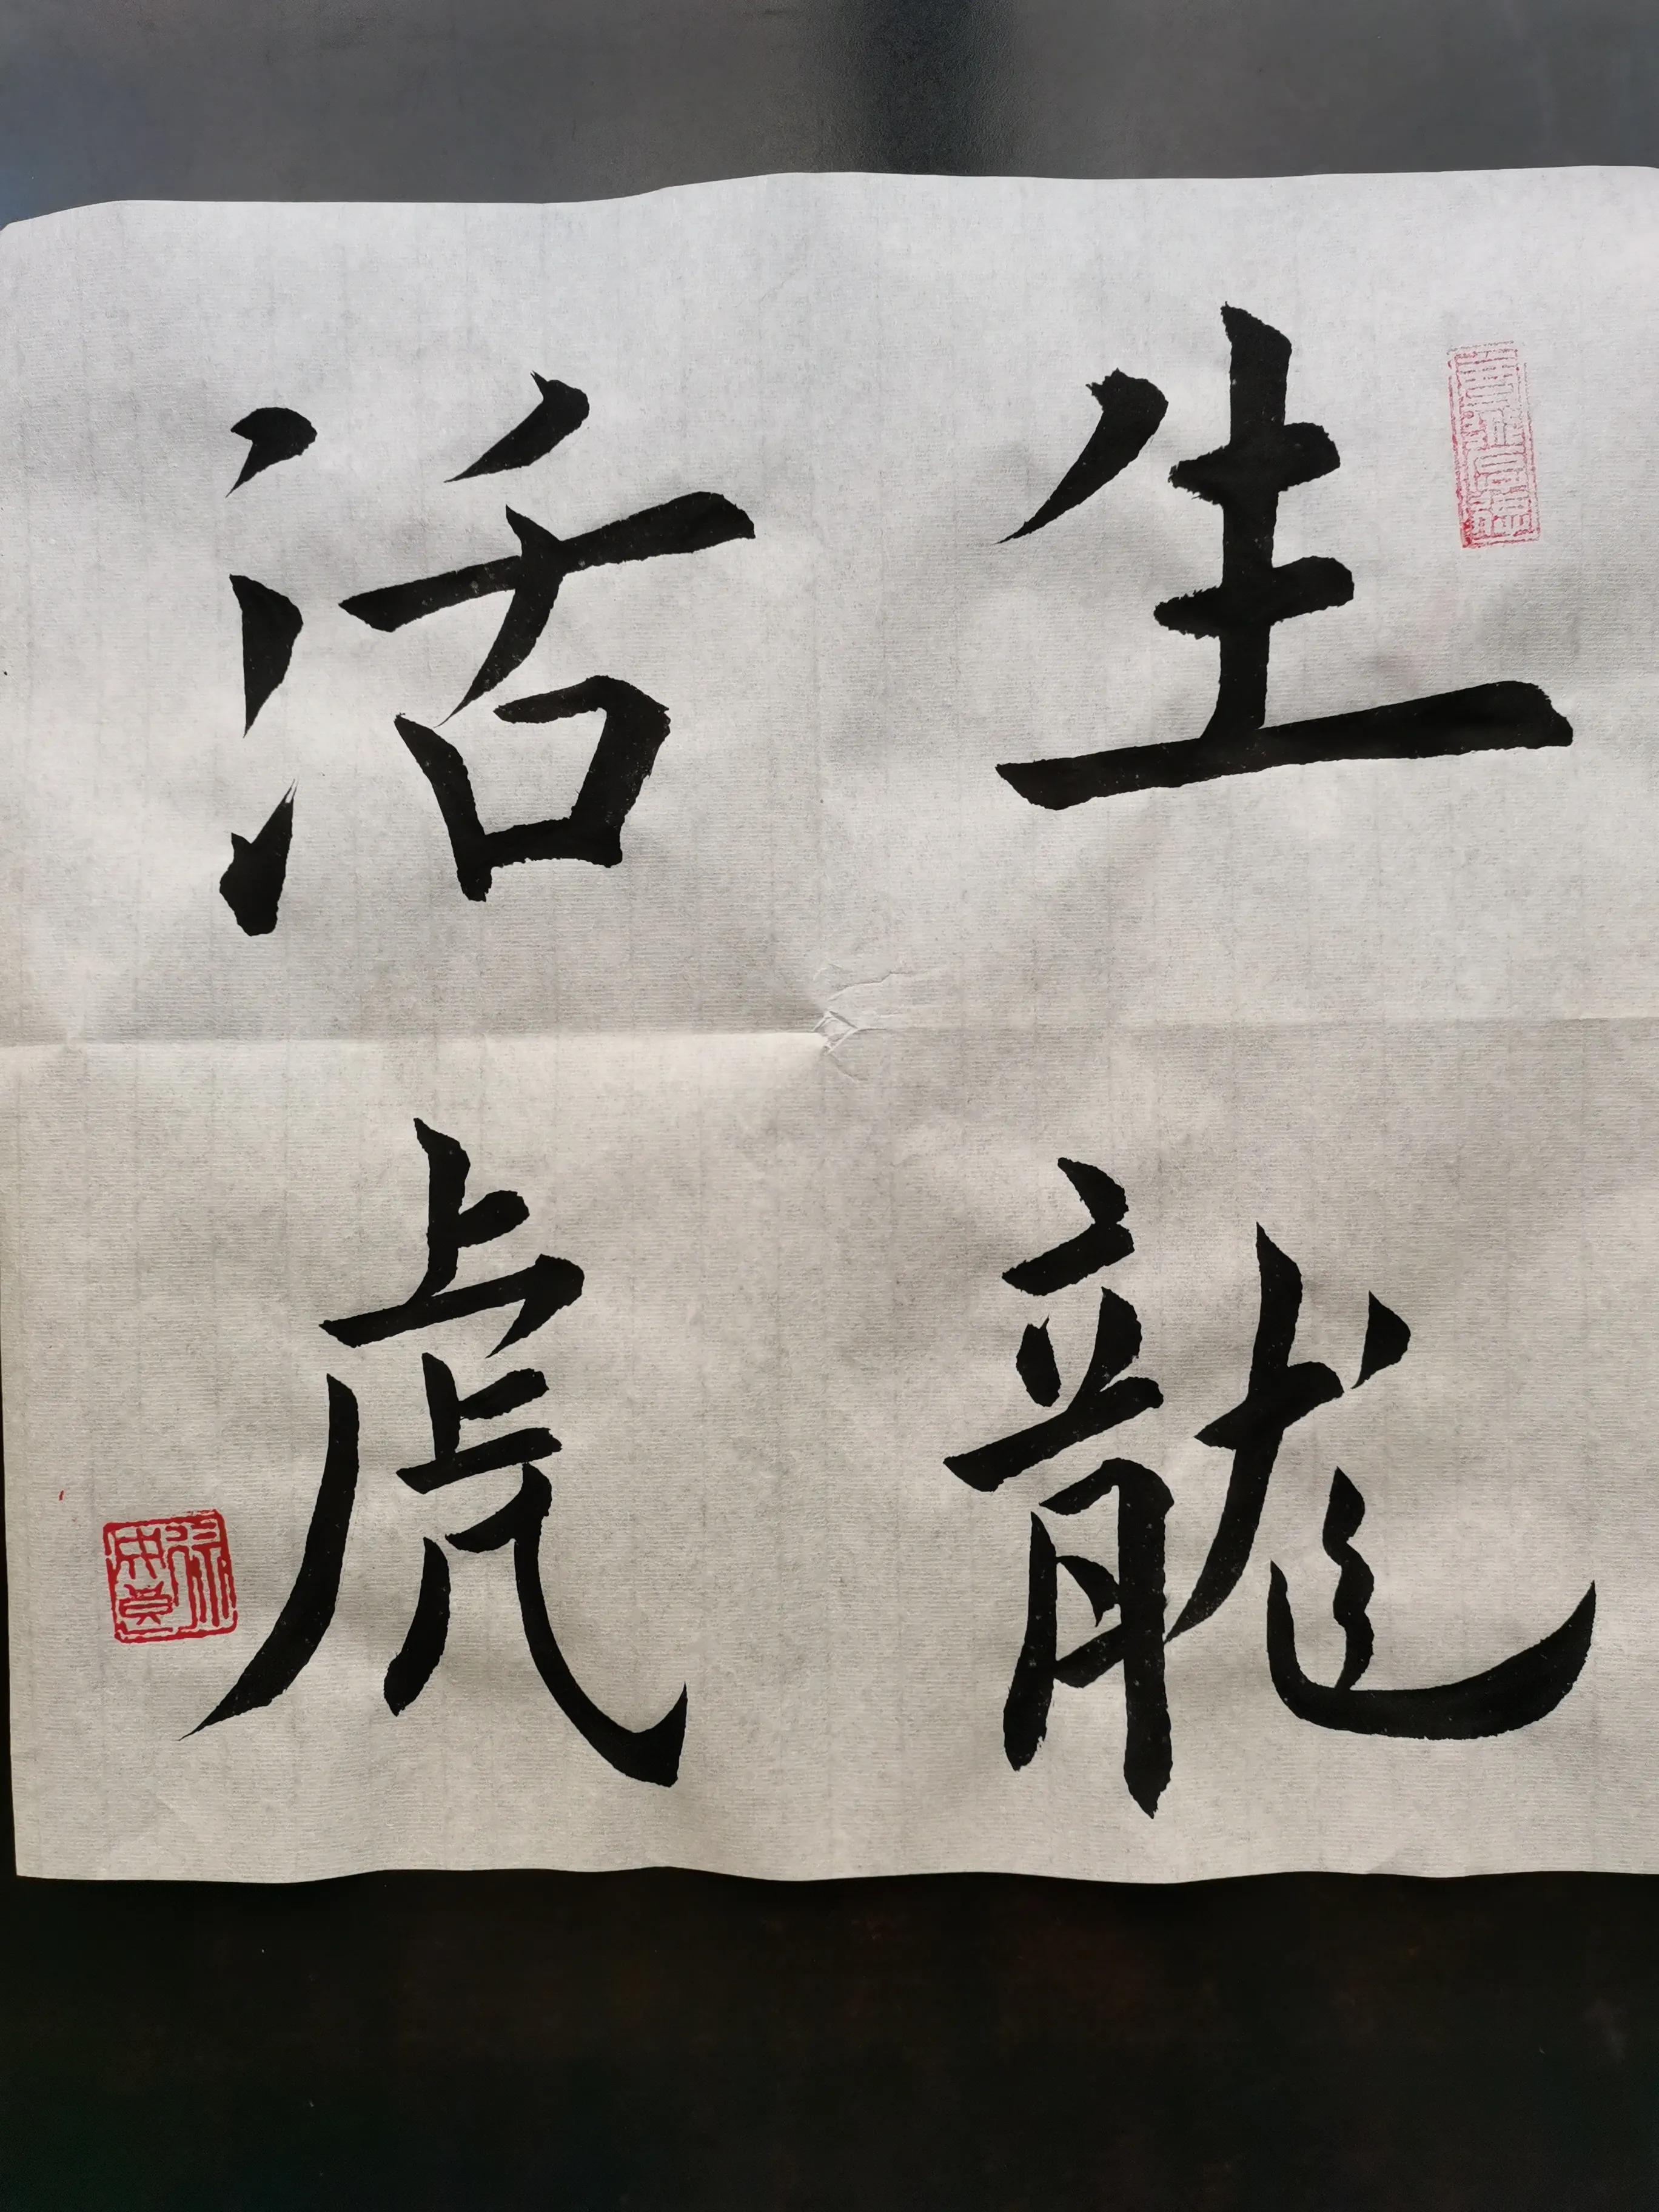 生龍
活虎